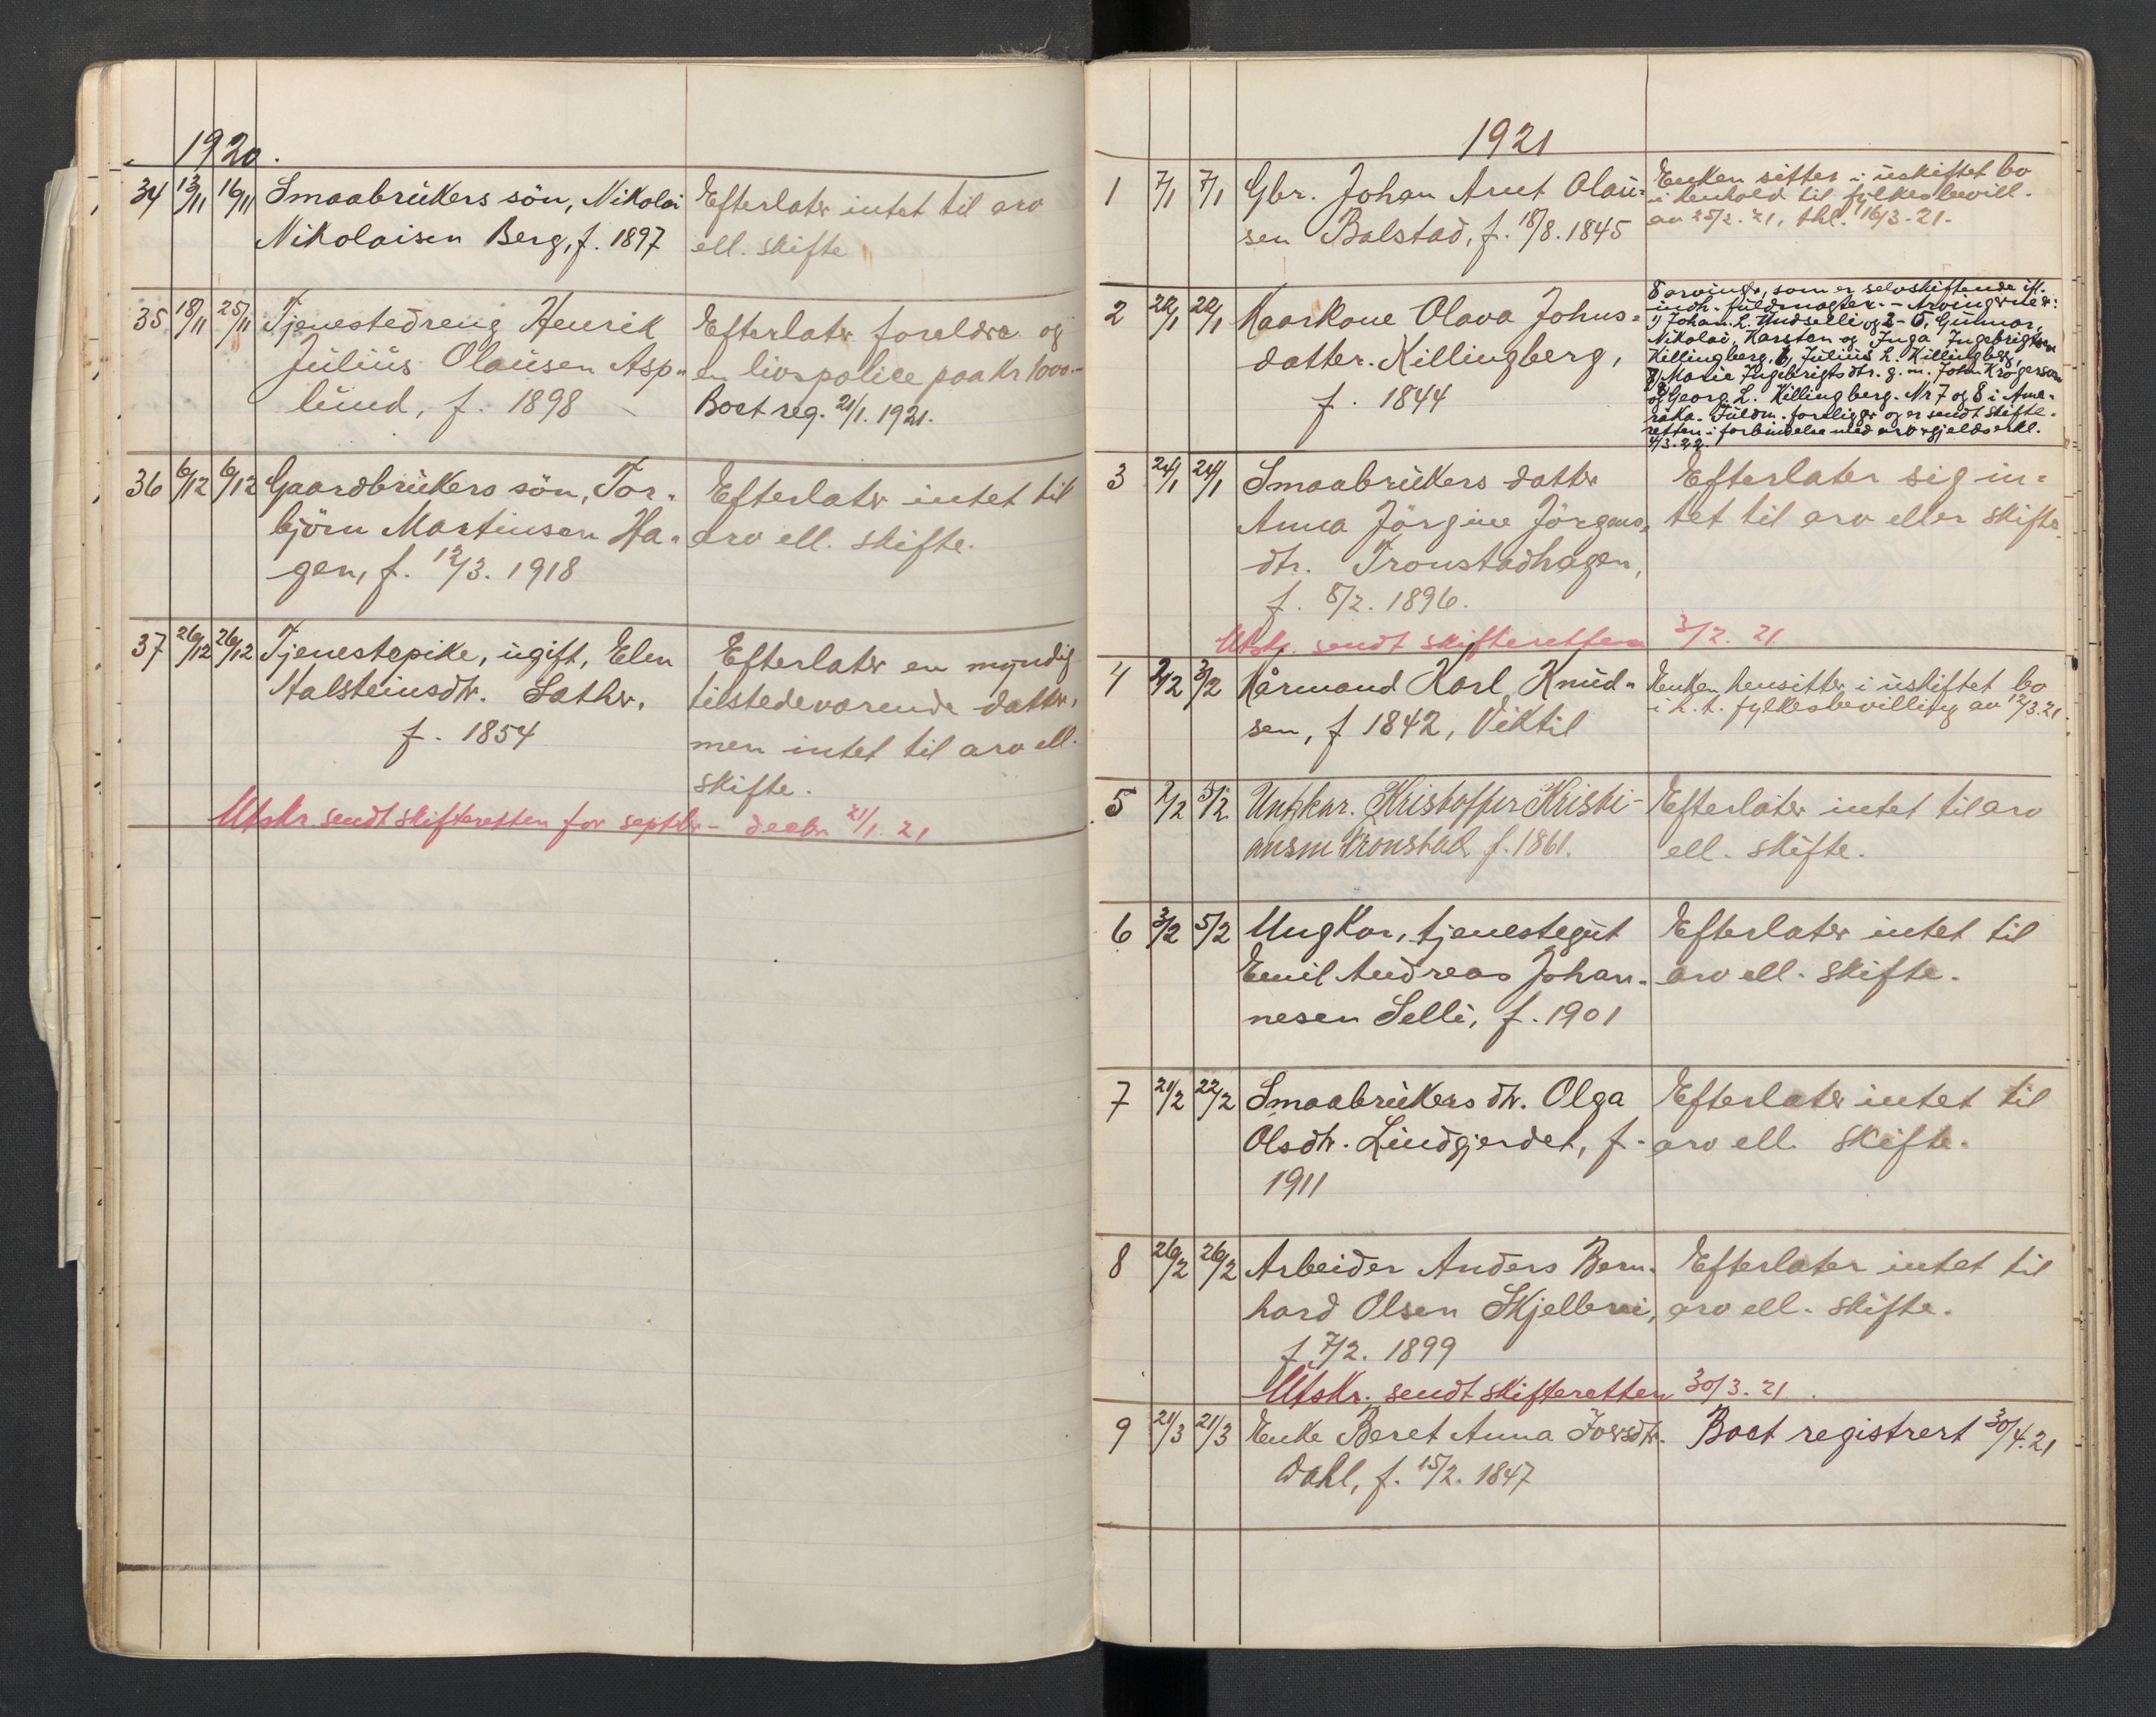 1920.
34 13/11 16/11 Smaabrukers sön, Nikolai Efterlater intet til arv
Nikolaisen Berg, f. 1897 ell. skifte
35 18/11 25/11 Tjenestedreng Henrik Efterlater foreldre og
Julius Olausen Asp- en livspolice paa Kr 1000.-
lund, f. 1898 Boet reg. 21/1. 1921.
36 6/12 6/12 Gaardbrukers sön, Tor- Efterlater intet til
björn Martinsen Ha- arv ell. skifte.
gen, f. 12/3. 1918
37 26/12 26/12 Tjenestepike, ugift, Elen Efterlater en myndig
Halsteinsdtr. Sather, tilstedevarende datter,
f. 1854 men intet til arv ell.
skifte.
Utskr. sendt skifteretten for septbr - decbr 21/1. 21
1921
1 7/1 7/1 Gbr. Johan Arnt Olau= Enken sitter i uskiftet bo
i henhold til fylkesbevill.
sen Balstad, f. 18/8. 1845 av 25/2. 21, thl. 16/3-21.
2 22/1 22/1 Kaarkone Olava Johns= 8 arvinger, som er selvskiftende ifl.
datter Killingberg, indh. fuldmagter. - Arvingerne er:
f. 1844 1) Johan L. Undselli og 2-5, Gunnar,
Nikolai, Karsten og Inga Ingebrigtsen
Killingberg, 6, Julius L. Killingberg,
7) Marie Ingebrigtsdtr. g. m. John
og 8) Georg L. Killingberg. Nr 7 og 8 i Ame-
rika. Fuldm. foreligger og er sendt skifte-
retten i forbindelse med arv-gjeldserkl.
4/3-22.
3 24/1 24/1 Smaabrukers datter Efterlater sig in=
Anna Jörgine Jörgens= tet til arv eller skifte.
dtr. Tronstadhagen,
f. 8/2. 1896.
Utskr. sendt skifteretten 3/2. 21
4 2/2 3/2 Kårmand Karl Knud- Enken hensitter i uskiftet bo
i h. t. fylkesbevilling av 12/3.21
sen, f 1842, Viktil
5 2/2 5/2 Ungkar. Kristoffer Kristi- Efterlater intet til arv
ansen Tronstad f. 1861. ell. skifte.
6 3/2 5/2 Ungkar, tjenestegut Efterlater intet til
Emil Andreas Johan- arv ell. skifte.
nesen Selli, f. 1901
7 21/2 22/2 Smaabrukers dtr. Olga Efterlater intet til
Olsdtr. Lindgjerdet, f. arv ell skifte.
1911
8 26/2 26/2 Arbeider Anders Bern- Efterlater intet til
hard Olsen Skjelbrei, arv ell. skifte.
f. 7/2. 1899
Utskr. sendt skifteretten 30/3. 21.
9 21/3 21/3 Enke Beret Anna Iversdtr. Boet registrert 30/4.21
Dahl, f. 15/2. 1847